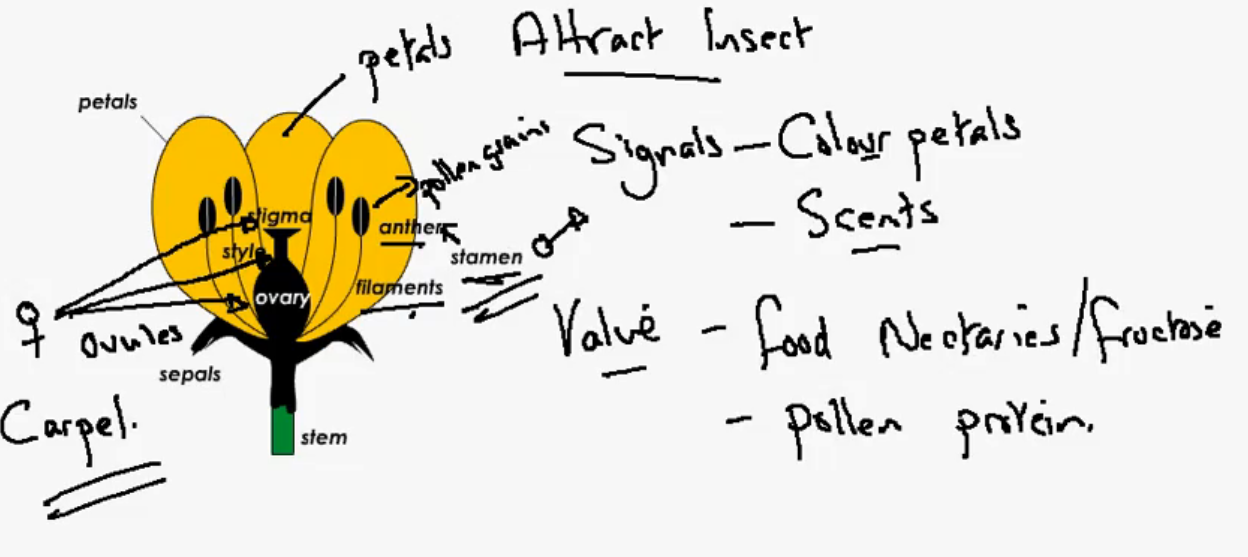 petals Attract Insect
petals
Signals - Colour petals
pollen grains
- Scents
stigma
anther
style
stamen
ovary
filaments
Value - food Nectaries/fructose
ovules
sepals
Carpel.
- pollen protein.
stem